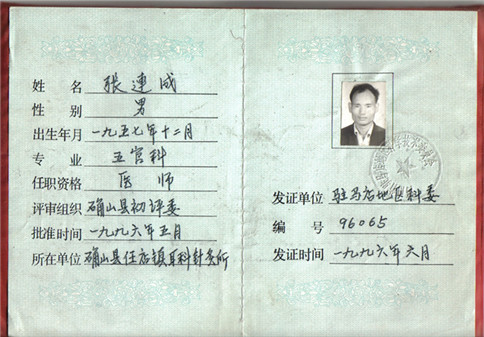 姓名 張連成
性别 男
出生年月 一九五七年十二月
专业 五官科
任职资格 医师
评审组织 确山县初评委
批准时间 一九九六年五月
所在单位 确山县任店镇耳科针灸所
发证单位 驻马店地区科委
编号 96065
发证时间 一九九六年六月